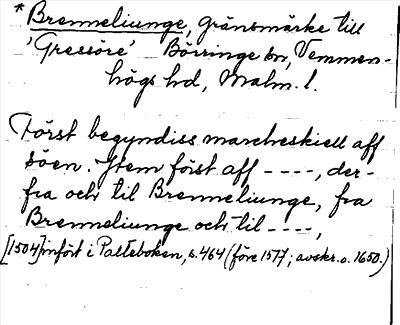 * Brenneliunge, gränsmärke till
'Gressöre' Börringe sn, Vemmen-
högs hd, Malm. l.
Först begyndiss marcheskiell aff
söen. Item först aff ----, der-
fra och til Brenneliunge, fra
Brenneliunge och til ----,
[1504] infört i Palteboken, s. 464 (före 1577; avskr. o. 1650.)